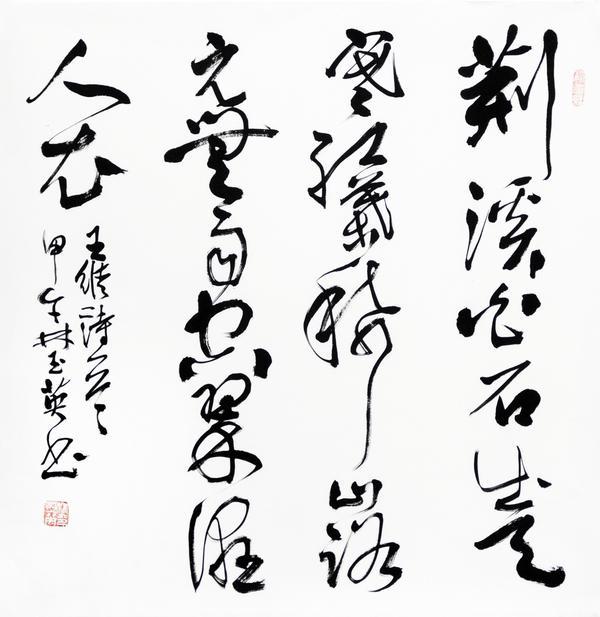 荆溪白石出天
寒紅葉稀山路
元無雨空翠濕
人衣
王維詩一首
甲午林玉英书